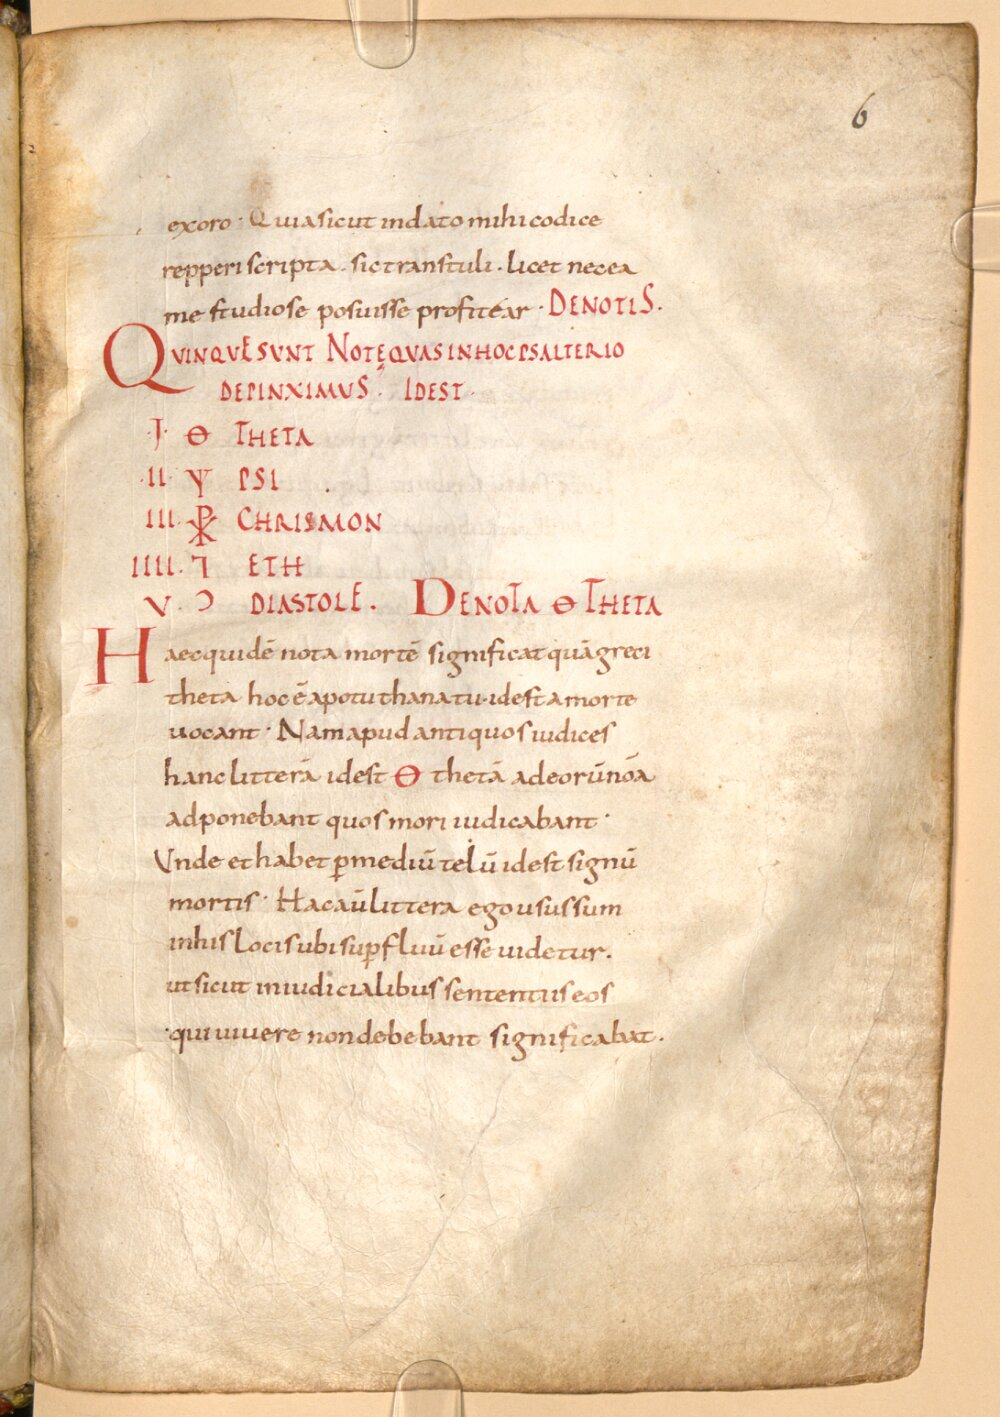 6
exoro · Quia sicut in dato mihi codice
repperi scripta · sic transtuli · licet nec ea
me studiose posuisse profitear · DE NOTIS.
QUINQUE SUNT NOTĘ QUAS IN HOC PSALTERIO
DEPINXIMUS · ID EST ·
·I· Θ THETA
·II Ψ PSI
III· ⳩ CHRISMON
IIII· ⁊ ETH
V · Ɔ DIASTOLE . DE NOTA Θ THETA
Haec quidē nota mortē significat quā greci
theta hoc ē apotu thanatu · id est a morte
uocant · Nam apud antiquos iudices
hanc litterā id est Θ thetā ad eorū noā
adponebant quos mori iudicabant ·
Unde et habet ꝑ mediū telū id est signū
mortis · Hac aū littera ego usus sum
in his locis ubi suꝑfluū esse uidetur.
ut sicut in iudicialibus sententiis eos
qui uiuere non debebant significabat.